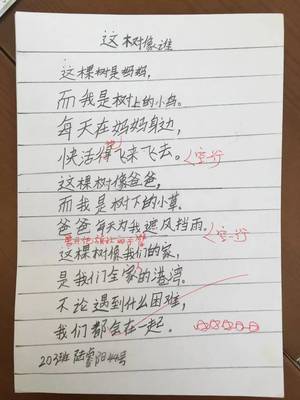 这树像谁
这棵树是妈妈，
而我是树上的小鸟。
每天在妈妈身边，
快活得飞来飞去。空一行
这棵树像爸爸，
而我是树下的小草。
爸爸每天为我遮风挡雨。空一行
这棵树像我们的家，
是我们全家的港湾。
不论遇到什么困难，
我们都会在一起。
203班 陆睿阳44号